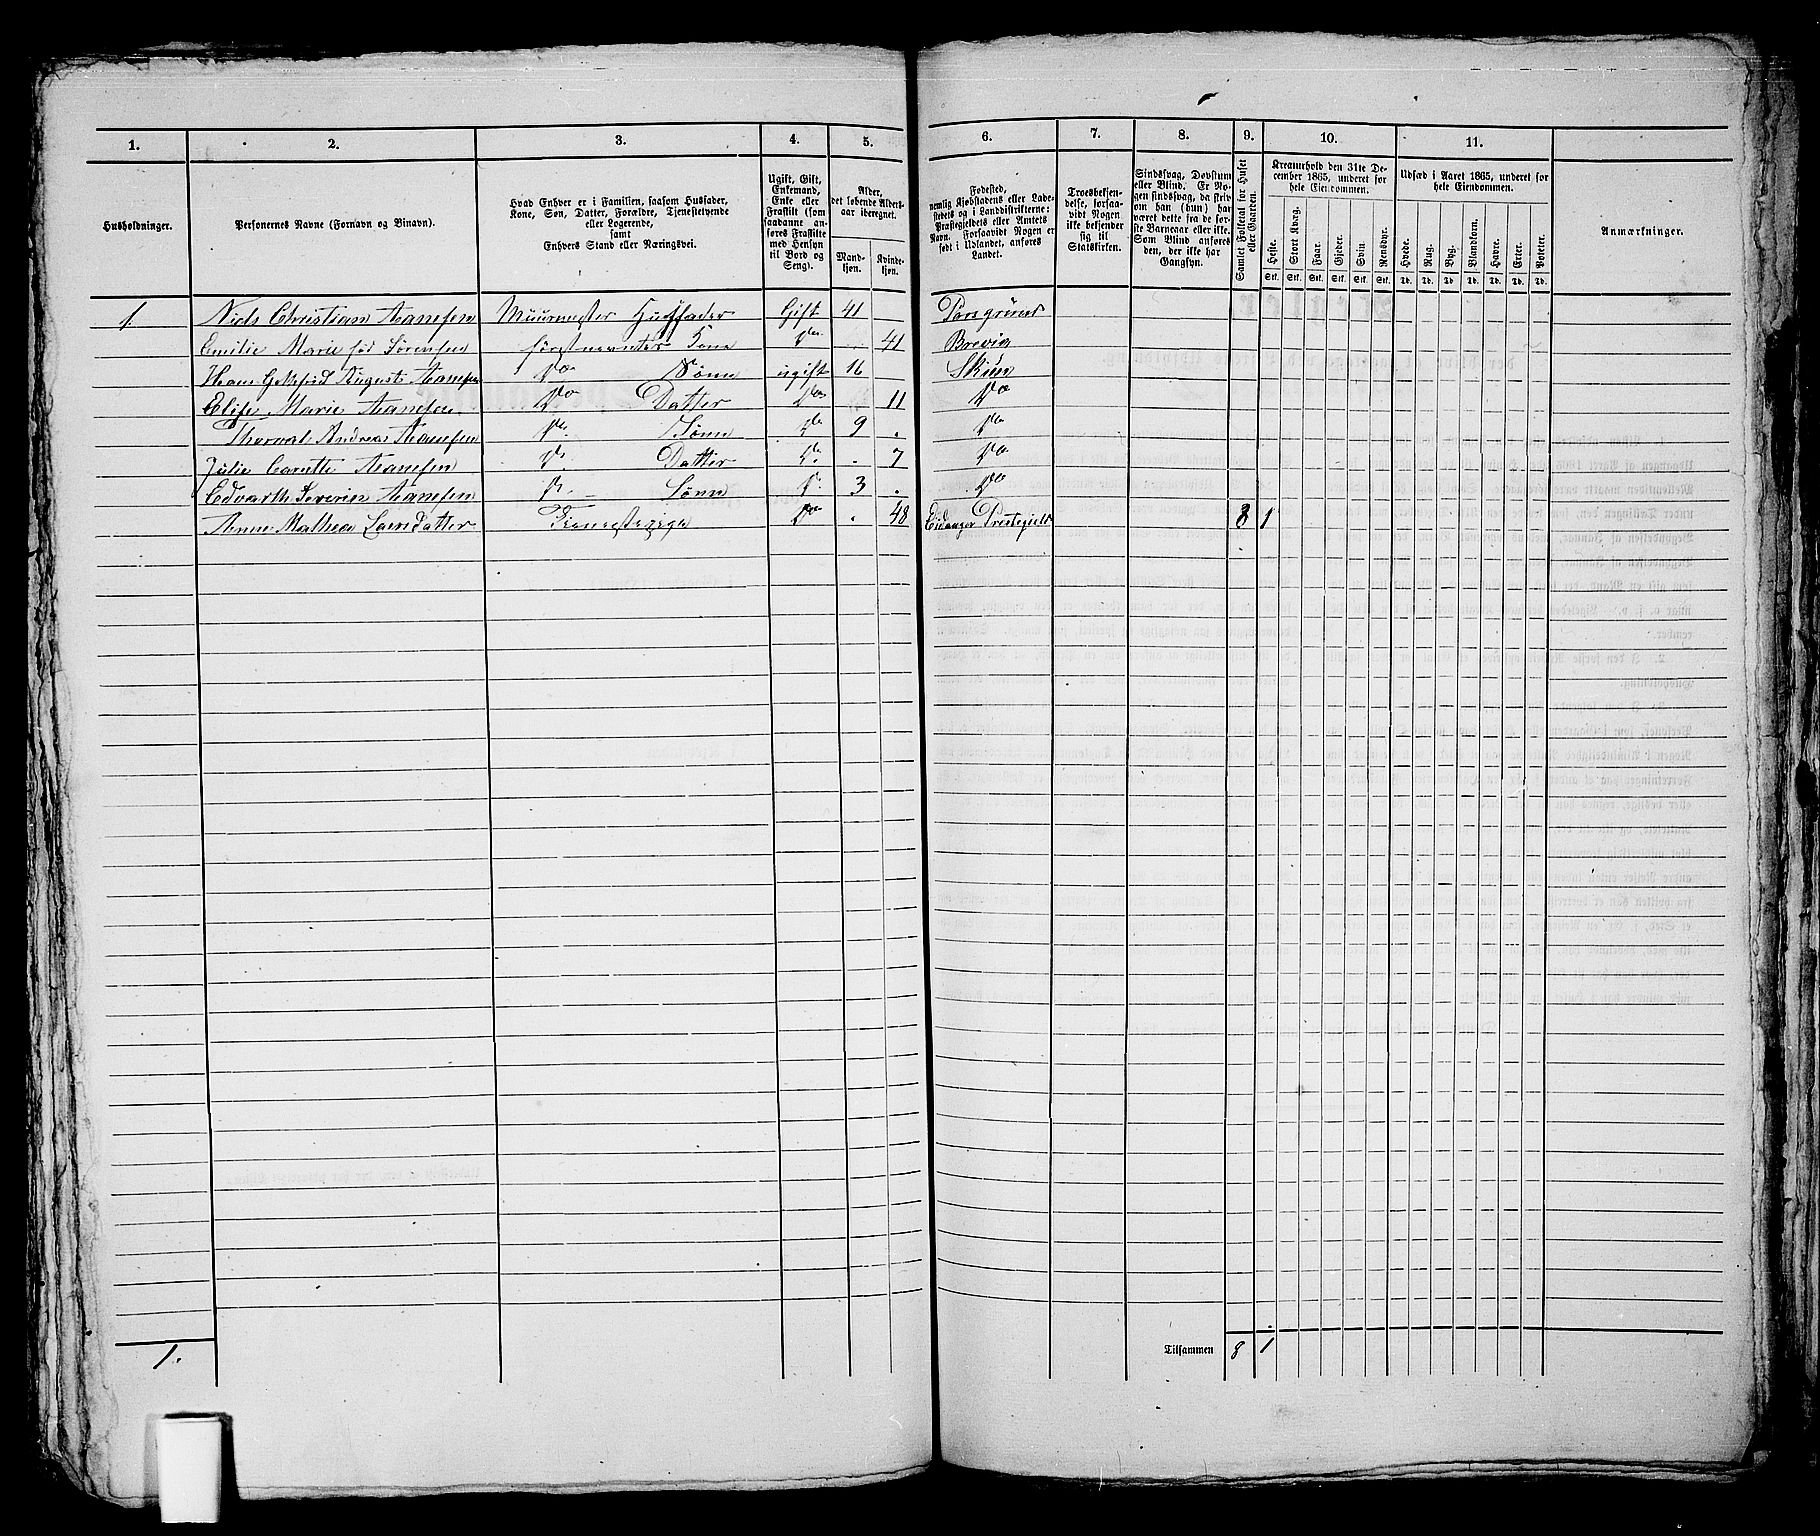 1. 2. 3. 4. 5. 6. 7. 8. 9. 10. 11.
Husholdninger.
Personernes Navne (Fornavn og Binavn).
Hvad Enhver er i Familien, saasom Husfader,
Kone, Søn, Datter, Forældre, Tjenestetyende
eller Logerende,
samt
Enhvers Stand eller Næringsvei.
Ugift, Gift,
Enkemand,
Enke eller
Fraskilt (som
saadanne an-
føres Fraskilte
med Hensyn
til Bord og
Seng).
Alder,
det løbende Alders-
aar iberegnet.
Mand-
kjøn.
Kvinde-
kjøn.
Fødested,
nemlig Kjøbstadens eller Lade-
stedets og i Landdistrikterne:
Præstegjeldets eller Amtets
Navn. Forsaavidt Nogen er
født i Udlandet, anføres
Landet.
Troesbekjen-
delse, forsaa-
vidt Nogen
ikke bekjender
sig til
Statskirken.
Sindssvag, Døvstum
eller Blind. Er No-
gen sindssvag, da skriv
om han (hun) har
været dette fra de før-
ste Barneaar eller ikke.
Som Blind anføres
den, der ikke har
Gangsyn.
Samlet Folketal for Huset
eller Gaarden.
Kreaturhold den 31te De-
cember 1865, underet for
hele Eiendommen.
Heste. Stort Kvæg. Faar. Gjeder. Sviin. Rensdyr.
Stk. Stk. Stk. Stk. Stk. Stk.
Udsæd i Aaret 1865, underet for
hele Eiendommen.
Hvede. Rug. Byg. Blandkorn. Havre. Erter. Poteter.
Td. Td. Td. Td. Td. Td. Td.
Anmærkninger.
1. Niels Christian Aanesen Muurmester Huusfader Gift 41 Porsgrund
Emilie Marie fød Sørensen førstnævntes Kone Do 41 Brevig
Hans Gottfrid August Aanesen Do Sønn ugift 16 Skien
Elise Marie Aanesen Do Datter Do 11 Do
Thorval Andreas Aanesen Do Sønn Do 9 Do
Julie Aanesen Do Datter Do 7 Do
Edvarth Severin Aanesen Do Sønn Do 3 Do
Anne Mathea Larsdatter Tjenestepige Do 48 Eidanger Prestegield 8 1
1. Tilsammen 8 1